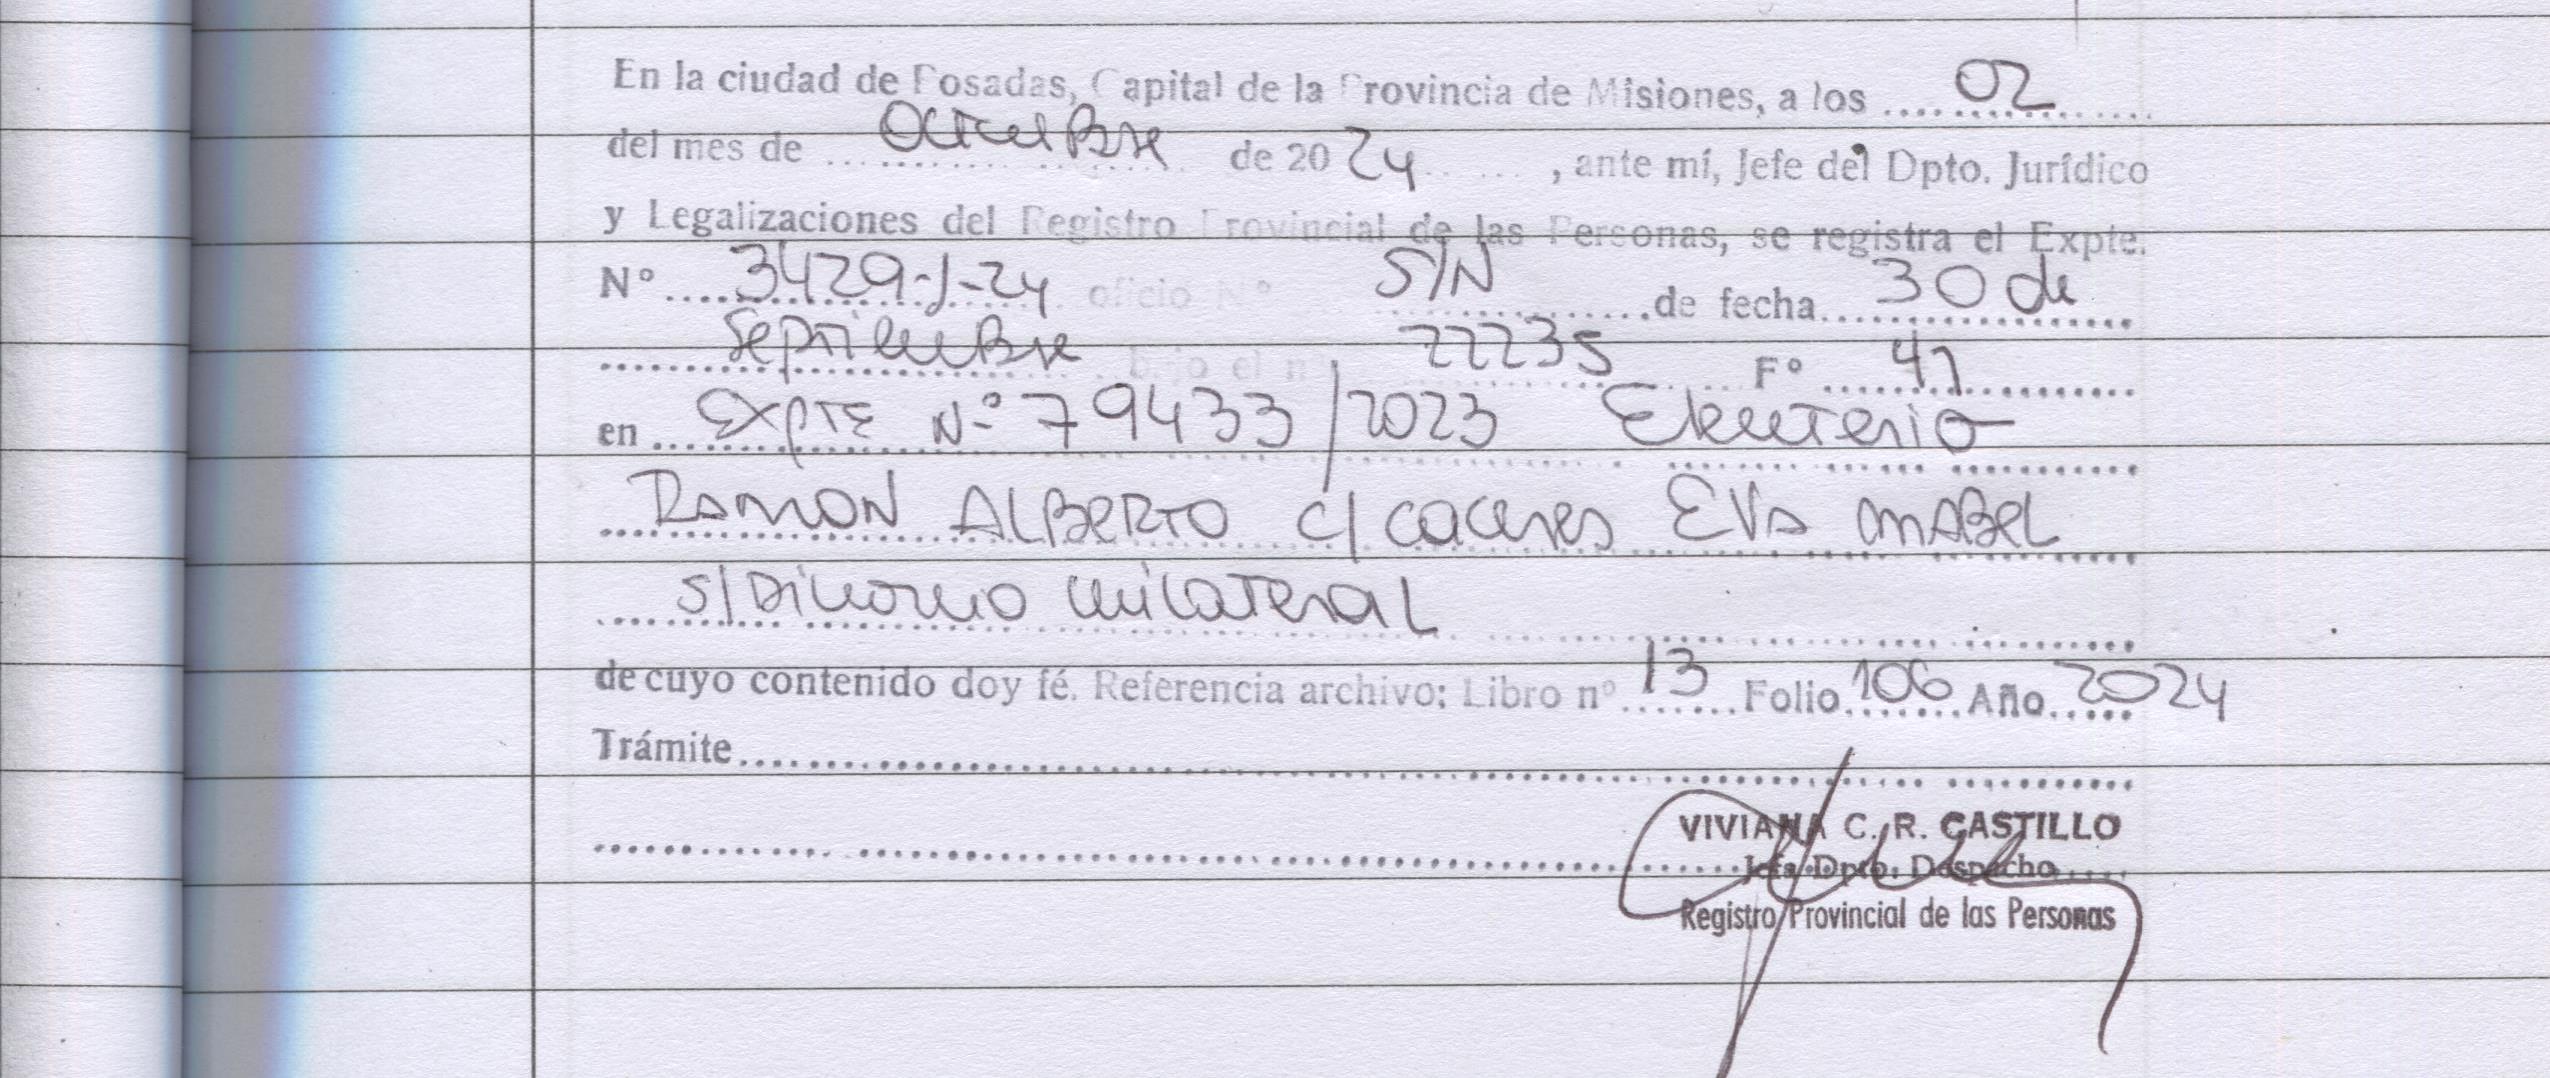 En la ciudad de Posadas, Capital de la Provincia de Misiones, a los 02
del mes de Octubre de 2024, ante mí, Jefe del Dpto. Jurídico
y Legalizaciones del Registro Provincial de las Personas, se registra el Expte.
Nº 3429-J-24 oficio Nº S/N de fecha 30 de
Septiembre bajo el nº 22235 Fº 41
en EXPTE Nº 79433/2023 Eleuterio
RAMON ALBERTO c/ caceres EVA MABEL
S/Divorcio unilateral
de cuyo contenido doy fé. Referencia archivo: Libro nº 13 Folio 106 Año 2024
Trámite
VIVIANA C. R. CASTILLO
Jefa Dpto. Despacho
Registro Provincial de las Personas